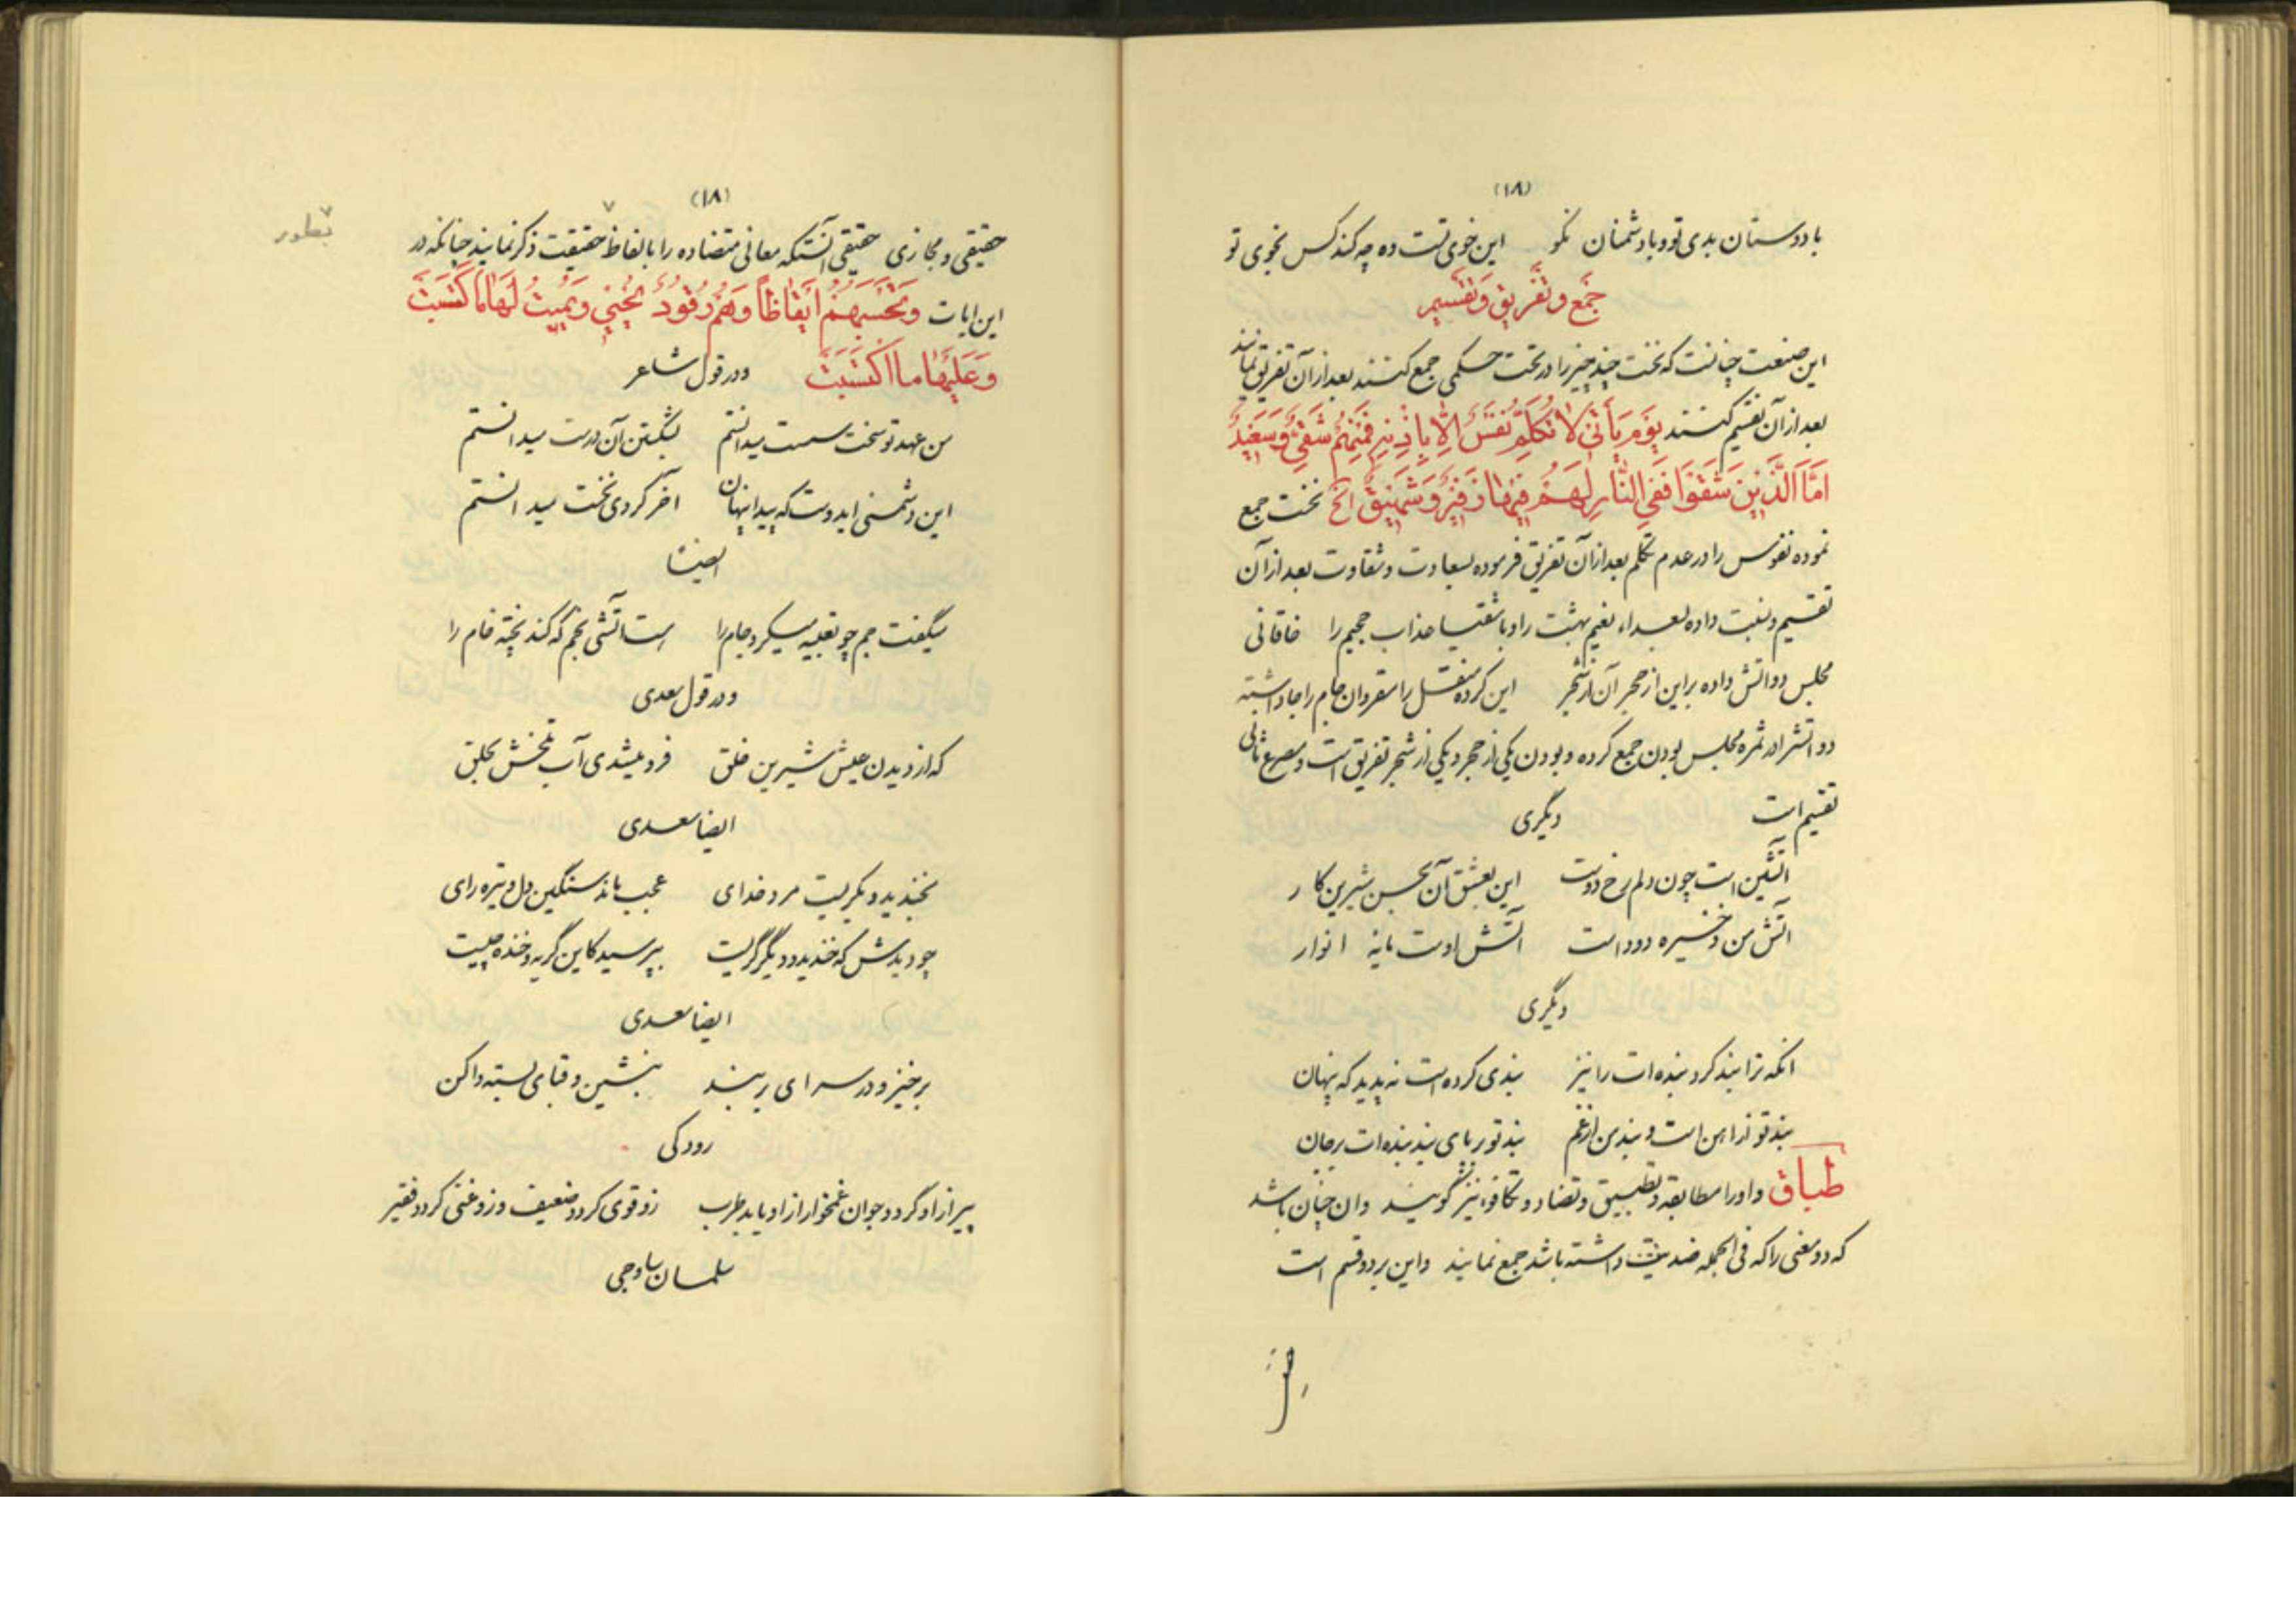 (۱۸)
با دوستان بدی تو و با دشمنان نکو این خوی تست ده چه کند کس بخوی تو
جَمع وَتَفریق وَتَقسیم
این صنعت چنانست که نخست چند چیز را در تحت حکمی جمع کنند بعد از آن تفریق نمایند
بعد از آن تقسیم کنند یَوْمَ یَأْتی لا تَکَلَّمُ نَفْسٌ اِلّا بِاِذْنِهِ فَمِنْهُمْ شَقِیٌّ وَسَعیدٌ
اَمَّا الَّذینَ شَقُوا فَفِی النّارِ لَهُمْ فیها زَفیرٌ وَشَهیقٌ الخ نخست جمع
نموده نفوس را در عدم تکلم بعد از آن تفریق فرموده بسعادت و شقاوت بعد از آن
تقسیم و نسبت داده بسعداء نعیم بهشت را و باشقیا عذاب جحیم را خاقانی
مجلس دو آتش داده بر این از حجر آن از شجر این کرده منقل را مقر وان جام را جا داشته
دو آتش را در ثمره مجلس بودن جمع کرده و بودن یکی از حجر و یکی از شجر تفریق است و مصرع ثانی
تقسیم است دیگری
آتشین است چون دلم رخ دوست این بعشق آن بحسن شیرین کار
آتش من ذخیره دود است آتش اوست مایه انوار
دیگری
انکه ترا بند کرد بنده ات را نیز بندی کرده است نه پدید که پنهان
بند تو از اهن است و بند من از غم بند تو بر پای بند بنده ات بر جان
طباق و او را مطابقه و تطبیق و تضاد و تکافوء نیز گویند وان چنان باشد
که دو معنی را که فی الجمله ضدیت داشته باشد جمع نمایند واین بر دو قسم است
(۱۸)
حقیقی و مجازی حقیقی آنستکه معانی متضاده را بالفاظ حقیقت ذکر نمایند چنانکه در
بطور
این ایات وَتَحْسَبُهُمْ اَیْقاظاً وَهُمْ رُقُودٌ یُحْیی وَیُمیتُ لَها ما کَسَبَتْ
وَعَلَیْها ما اکْتَسَبَتْ و در قول شاعر
من عهد تو سخت سست میدانستم بشکستن آن درست میدانستم
این دشمنی ایدوست که پیدا پنهان آخر کردی نخست میدانستم
ایضاً
میگفت جم چو تعبیه میکرد جام را است آتشی بخم که کند پخته خام را
و در قول سعدی
که از دیدن عیش شیرین خلق فرو میشدی آب تلخش بحلق
ایضا سعدی
بخندید و بگریست مرد خدای عجب ماند سنگین دل و تیره رای
چو دیدش که خندید و دیگر گریست بپرسید کاین گریه و خنده چیست
ایضا سعدی
برخیز و در سرای بربند بنشین و قبای بسته واکن
رودکی
پیر از او گردد جوان غمخوار از او یابد طرب زو قوی گردد ضعیف و زو غنی گردد فقیر
سلمان ساوجی